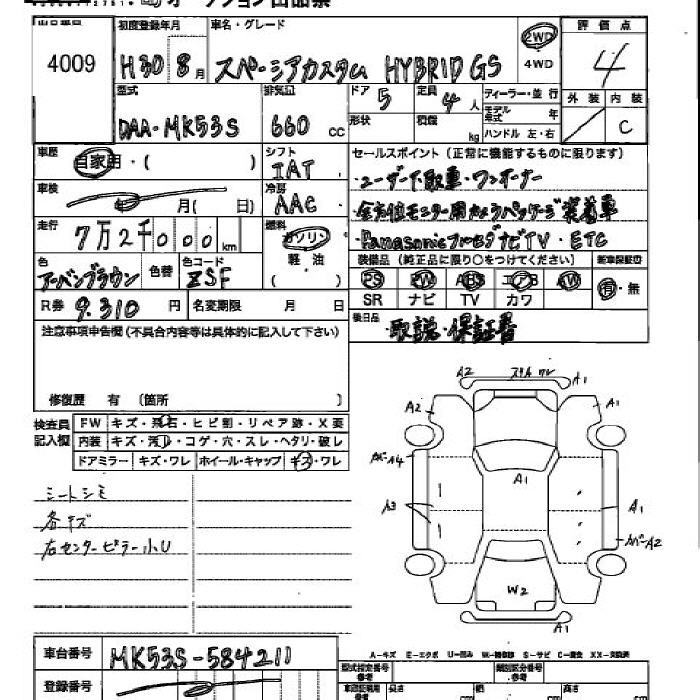 オークション出品票
出品番目
4009
初度登録年月
H30 8月
車名・グレード
スペーシアカスタム HYBRID GS
2WD
4WD
評価点
4
外装 内装
C
型式
DAA-MK53S
排気量
660 cc
ドア
5
形状
定員
4人
積載
kg
ディーラー・並行
モデル年式 年
ハンドル 左・右
車歴
自家用・( )
シフト
IAT
車検
年 月( 日)
冷房
AAC
走行
7万2千000km
燃料
ガソリン
軽油
( )
色
アーバンブラウン
色替
色コード
ZSF
R券 9.310 円
名変期限 月 日
セールスポイント(正常に機能するものに限ります)
・ユーザー下取車・ワンオーナー
・全方位モニター用カメラパッケージ装着車
・Panasonicフルセグナビ TV・ETC
装備品(純正品に限り○をつけてください)
新車保証書
PS PW ABS エアB AW
有・無
SR ナビ TV カワ
後日品
・取説・保証書
注意事項申告欄(不具合内容等は具体的に記入して下さい)
修復歴 有 〔箇所 〕
検査員記入欄
FW キズ・飛石・ヒビ割・リペア跡・X要
内装 キズ・汚れ・コゲ・穴・スレ・ヘタリ・破レ
ドアミラー キズ・ワレ ホイール・キャップ キズ・ワレ
シートシミ
各キズ
右センターピラー小U
A2 ステムワレ A1
A2 A1
カバーA4
A1
A3 A1
カバーA2
W2
A1
A-キズ E-エクボ U-凹み W-補修跡 S-サビ C-腐食 XX-交換済
車台番号
MK53S-584211
登録番号
型式指定番号 参考
類別区分番号 参考
長さ cm
cm
cm